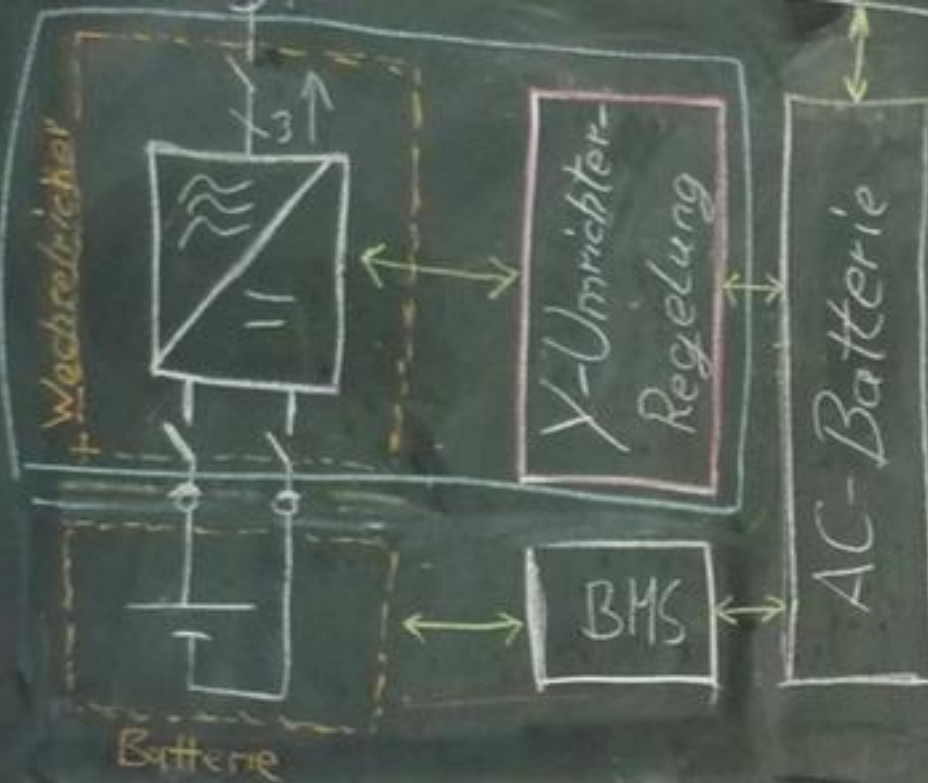 Wechselrichter
3
Y-Umrichter-
Regelung
AC-Batterie
BMS
Batterie